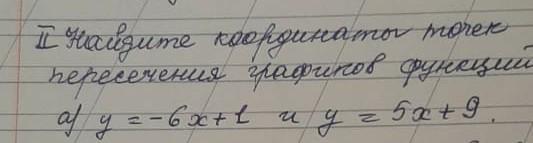 II Найдите координаты точек
пересечения графиков функций
а) y = -6x+1 и y = 5x+9.